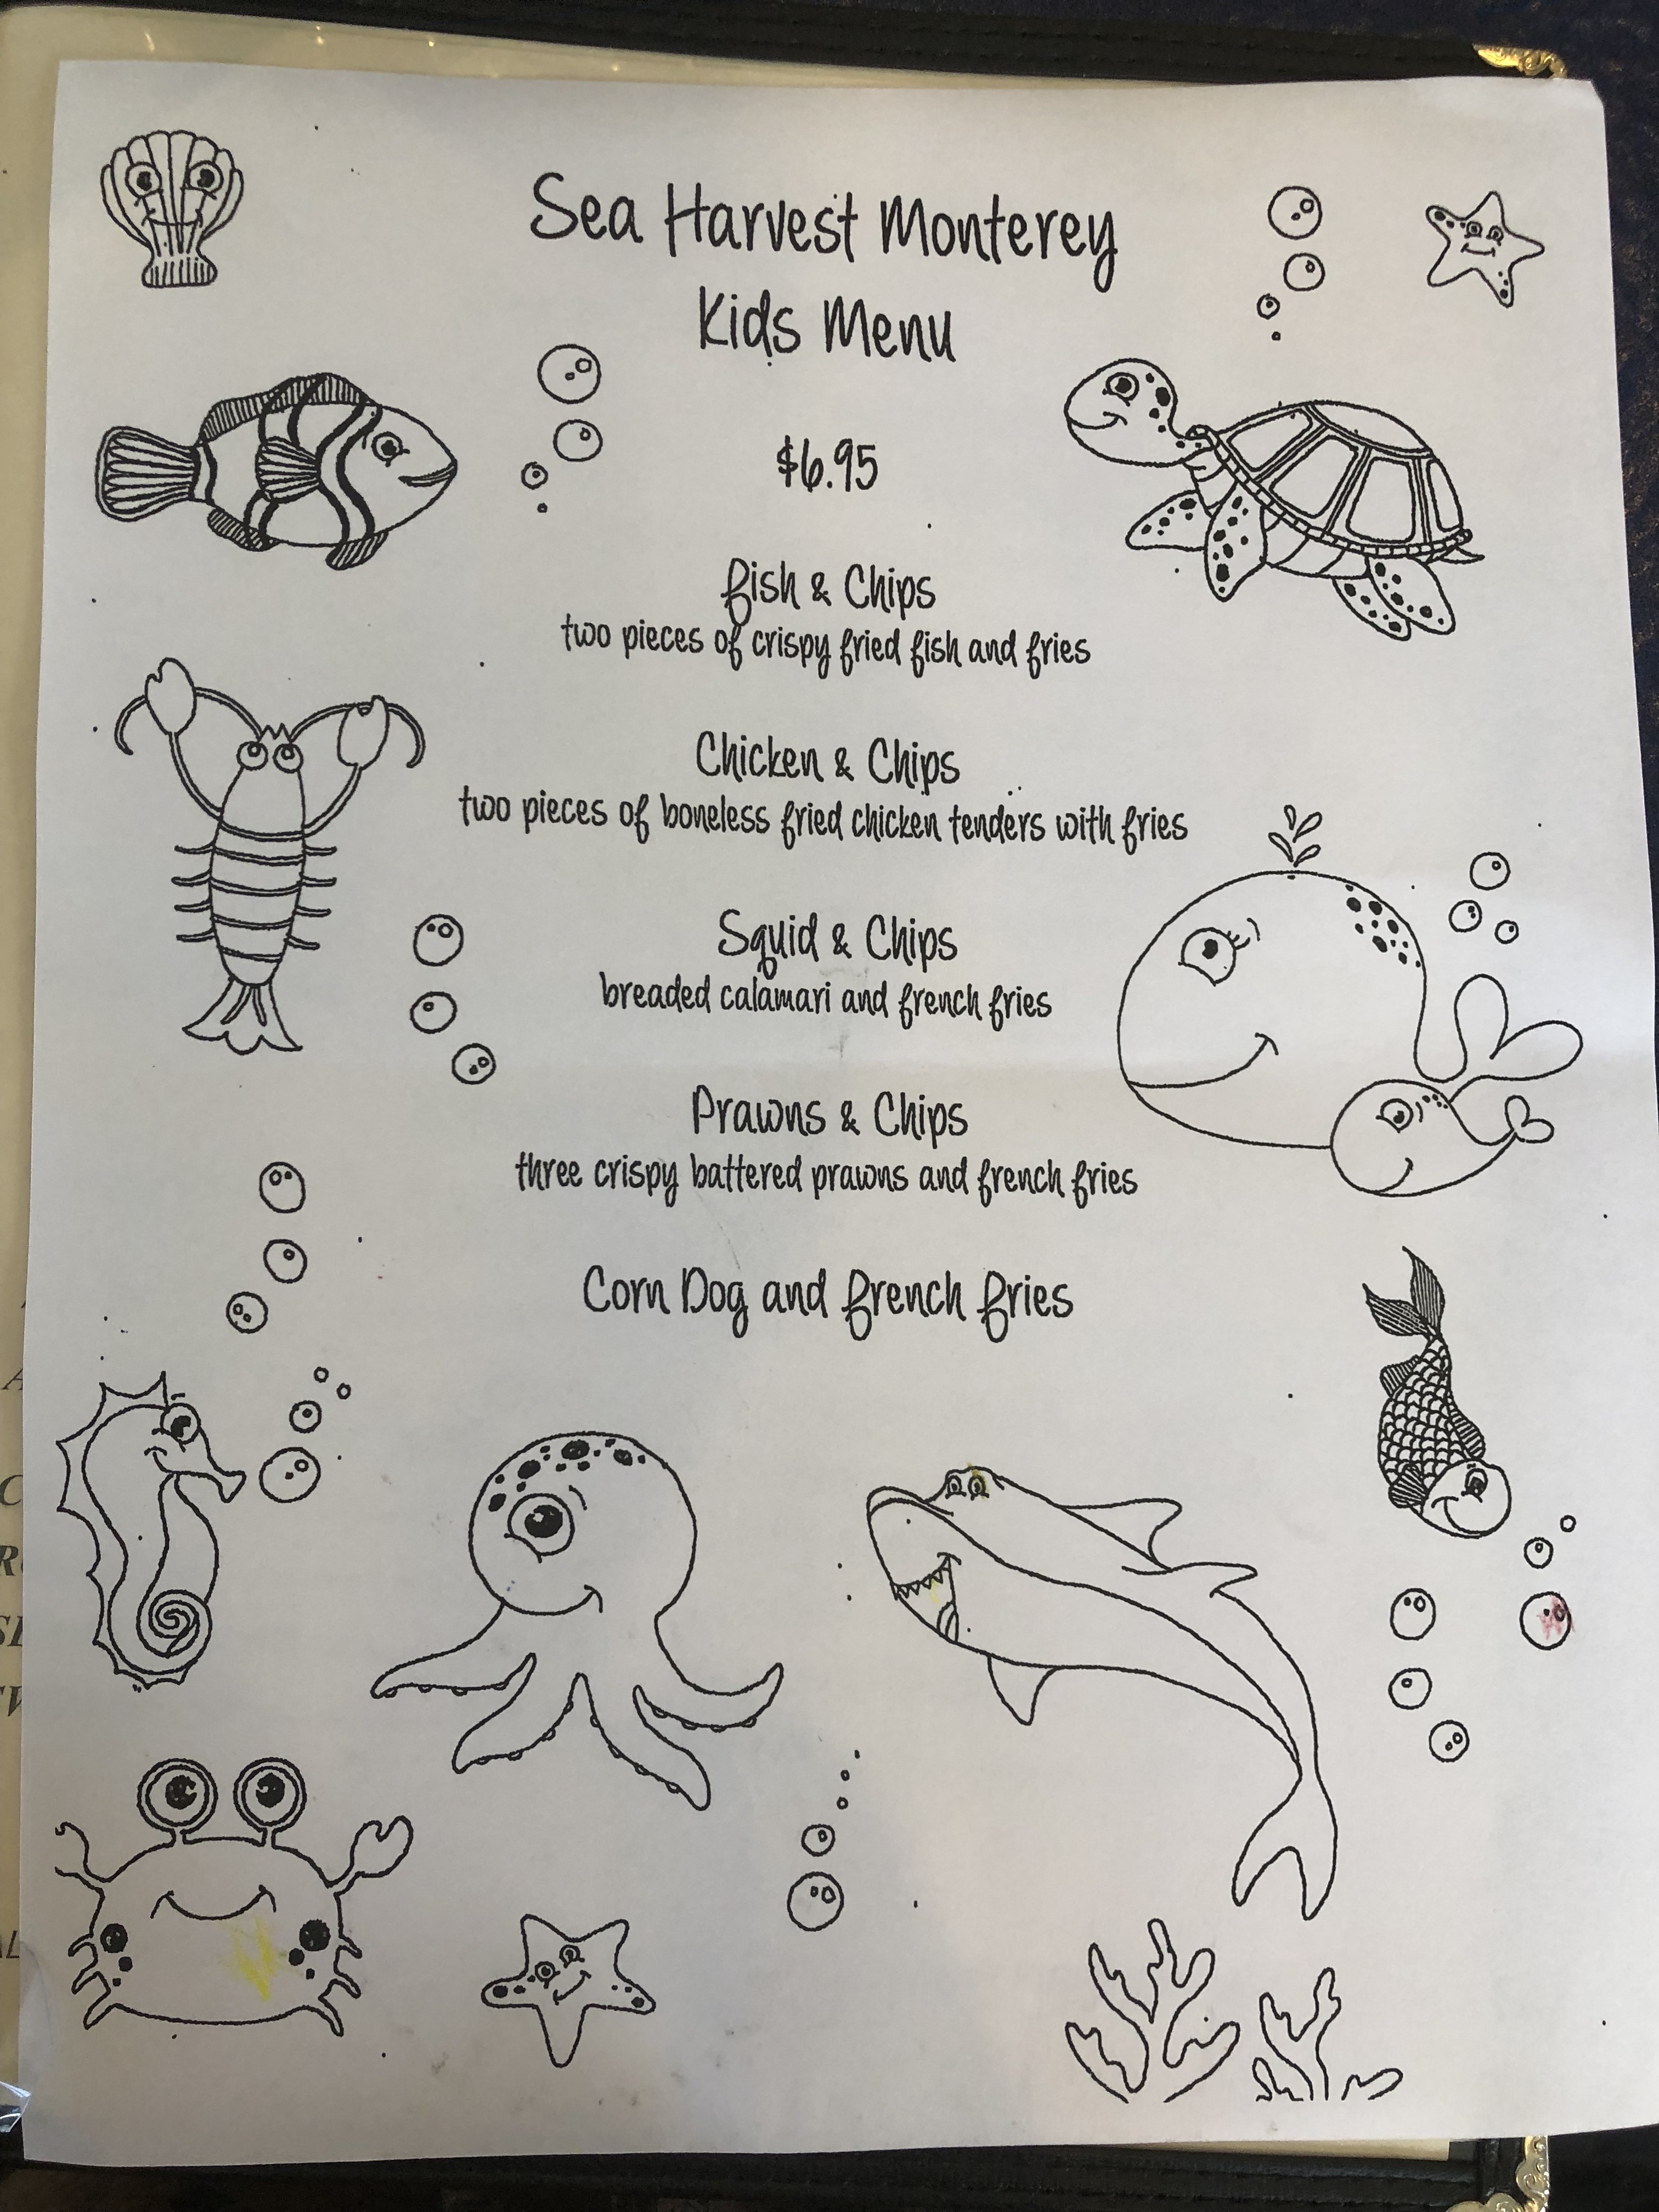 Sea Harvest Monterey
Kids Menu
$6.95
Fish & Chips
two pieces of crispy fried fish and fries
Chicken & Chips
two pieces of boneless fried chicken tenders with fries
Squid & Chips
breaded calamari and french fries
Prawns & Chips
three crispy battered prawns and french fries
Corn Dog and French Fries